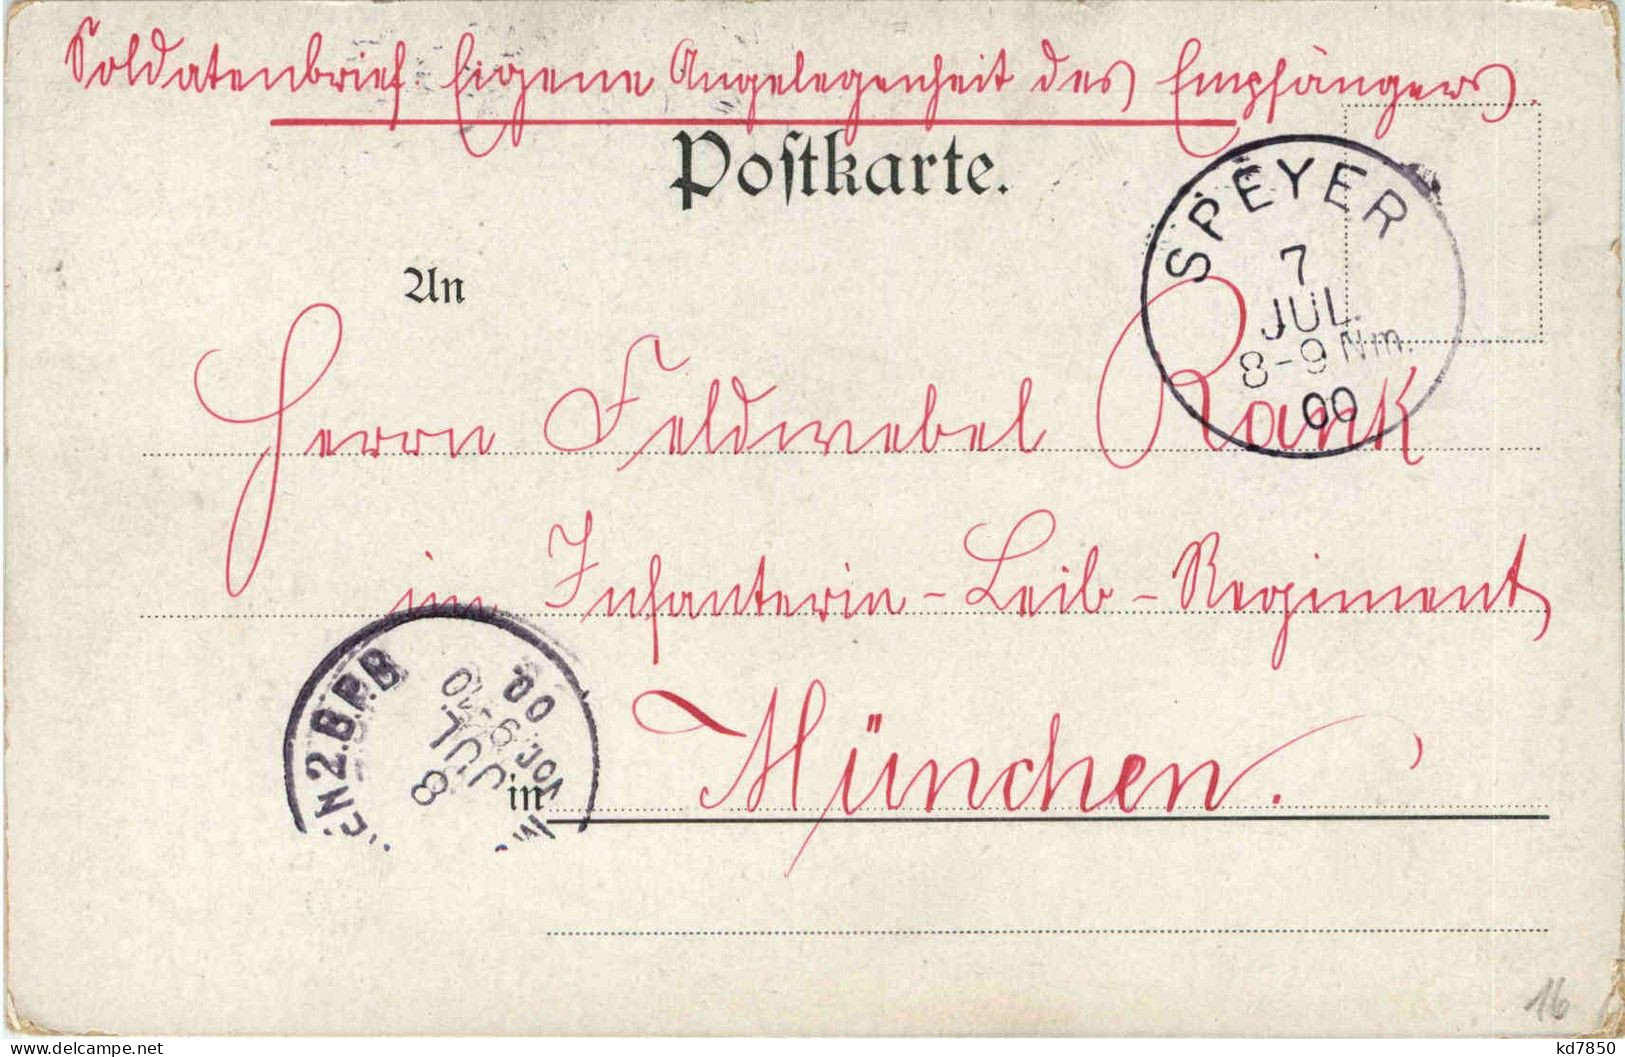 Soldatenbrief. Eigene Angelegenheit des Empfängers.
Postkarte.
SPEYER
7
JUL.
8-9 Nm.
00
An
Herrn Feldwebel Rank
im Infanterie-Leib-Regiment
EN 2.B.P.B
8
JUL
VOR. 9-10
00.
in München.
16
www.delcampe.net
kd7850